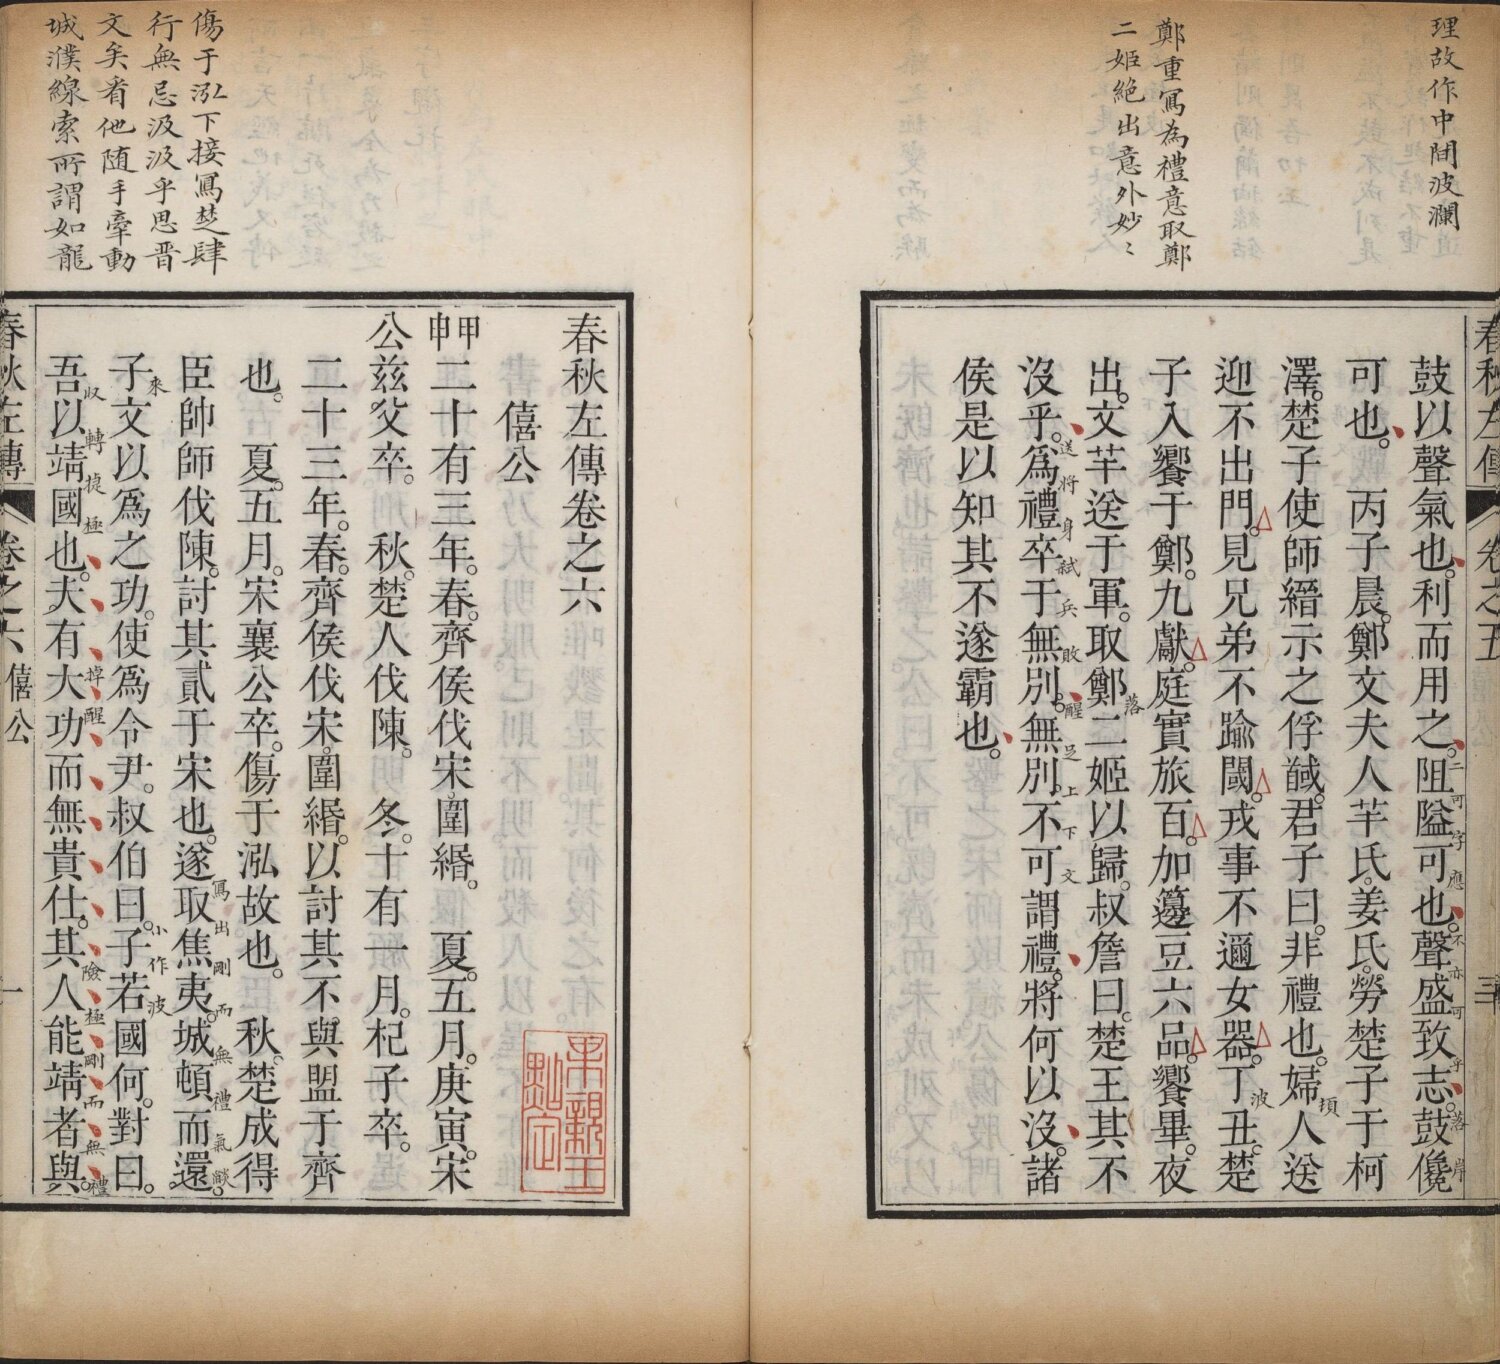 理故作中間波瀾
鄭重寫為禮意取鄭
二姬絕出意外妙〻
春秋左傳
卷之五
三
鼓以聲氣也。利而用之。阻隘可也。聲盛致志。鼓儳
二可字應
不亦可乎
落岸
可也。　丙子晨。鄭文夫人羋氏。姜氏。勞楚子于柯
澤。楚子使師縉示之俘馘。君子曰。非禮也。婦人送
頓
迎不出門。見兄弟不踰閾。戎事不邇女器。丁丑。楚
波
子入饗于鄭。九獻。庭實旅百。加籩豆六品。饗畢。夜
出。文羋送于軍。取鄭二姬以歸。叔詹曰。楚王其不
落
沒乎。爲禮卒于無別。無別。不可謂禮。將何以沒。諸
送將身弑兵敗
醒足上下文
侯是以知其不遂霸也。
傷于泓下接寫楚肆
行無忌汲汲乎思晋
文矣看他随手牽動
城濮線索所謂如龍
春秋左傳卷之六
果親王點定
僖公
甲申
二十有三年。春。齊侯伐宋。圍緡。　夏。五月。庚寅。宋
公茲父卒。　秋。楚人伐陳。　冬。十有一月。杞子卒。
二十三年。春。齊侯伐宋。圍緡。以討其不與盟于齊
也。　夏。五月。宋襄公卒。傷于泓故也。　秋。楚成得
臣帥師伐陳。討其貳于宋也。遂取焦夷。城頓而還。
寫出剛而無禮氣燄
子文以爲之功。使爲令尹。叔伯曰。子若國何。對曰。
來
小作波
吾以靖國也。夫有大功而無貴仕。其人能靖者與。
收
轉捩極
掉醒
險極剛而無禮
春秋左傳
卷之六
僖公
一